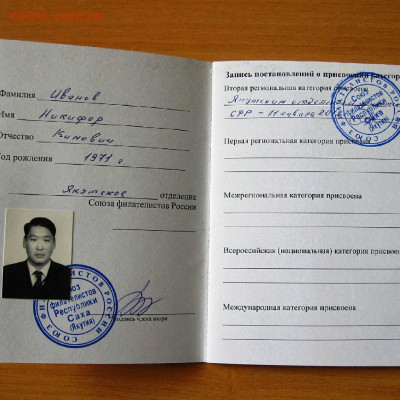 Фамилия Иванов
Имя Никифор
Отчество Кимович
Год рождения 1971 г.
Якутское отделение
Союза филателистов России
СОЮЗ ФИЛАТЕЛИСТОВ РОССИИ
Союз
филателистов
Республики
Саха
(Якутия)
подпись члена жюри
Запись постановлений о присвоении категор
Вторая региональная категория присвоена
Якутским отделе
СФР - 11 января
Первая региональная категория присвоен
Межрегиональная категория присвоена
Всероссийская (национальная) категория присвоен
Международная категория присвоена
Союз
филателистов
Республики
Саха
(Якутия)